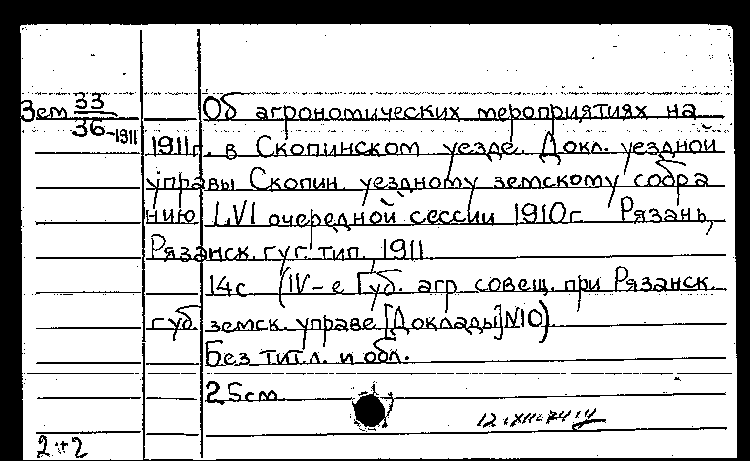 Зем 33/36-1911
Об агрономических мероприятиях на
1911г. в Скопинском уезде. Докл. уездной
управы Скопин. уездному земскому собра
нию LVI очередной сессии 1910г Рязань,
Рязанск. губ. тип., 1911
14с (IV-е Губ. агр совещ. при Рязанск.
губ. земск. управе [Доклады] №10)
Без тит.л. и обл.
25см
2+2